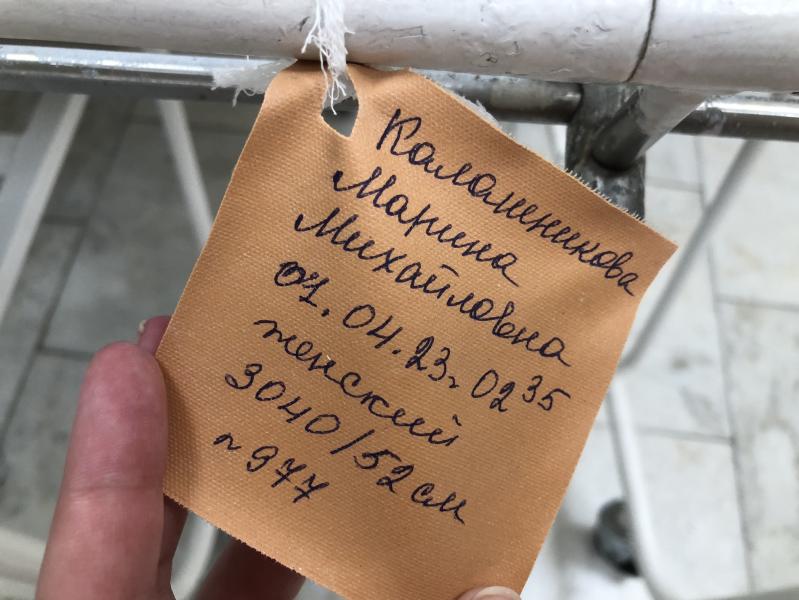 Калашникова
Марина
Михайловна
01.04.23г 02 35
женский
3040/52 см
№977